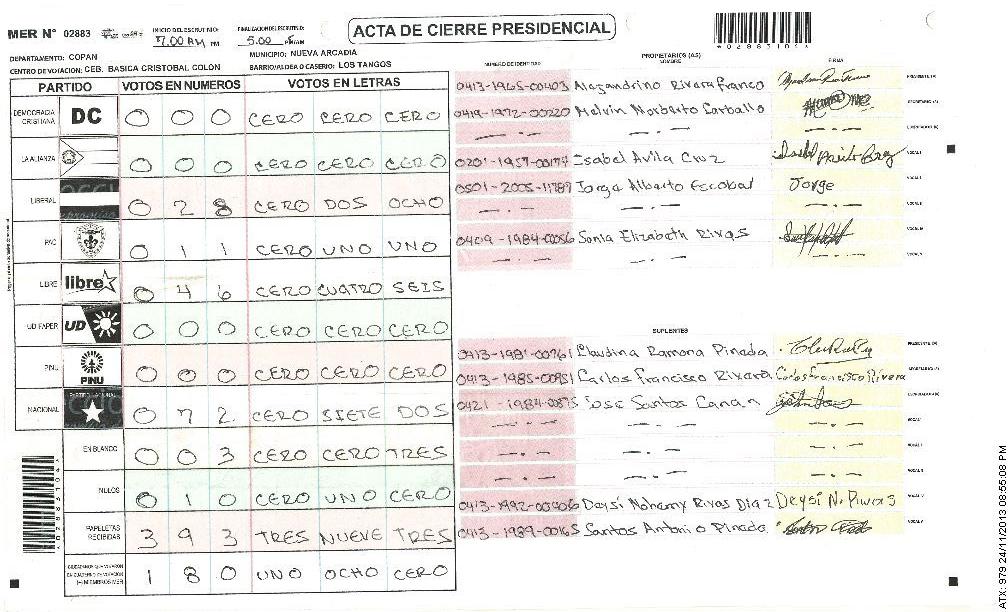 MER N° 02883
INICIO DEL ESCRUTINIO: 7.00 AM PM
FINALIZACION DEL ESCRUTINIO: 5.00 PM/AM
ACTA DE CIERRE PRESIDENCIAL
DEPARTAMENTO: COPAN
MUNICIPIO: NUEVA ARCADIA
CENTRO DE VOTACION: CEB. BASICA CRISTOBAL COLON
BARRIO/ALDEA O CASERIO: LOS TANGOS
PARTIDO VOTOS EN NUMEROS VOTOS EN LETRAS
DEMOCRACIA CRISTIANA DC 0 0 0 CERO CERO CERO
LA ALIANZA 0 0 0 CERO CERO CERO
LIBERAL 0 2 8 CERO DOS OCHO
PAC 0 1 1 CERO UNO UNO
LIBRE libre 0 4 6 CERO CUATRO SEIS
UD FAPER UD 0 0 0 CERO CERO CERO
PINU PINU 0 0 0 CERO CERO CERO
NACIONAL 0 7 2 CERO SIETE DOS
EN BLANCO 0 0 3 CERO CERO TRES
NULOS 0 1 0 CERO UNO CERO
PAPELETAS RECIBIDAS 3 9 3 TRES NUEVE TRES
CIUDADANOS QUE VOTARON EN CUADERNO DE VOTACION (+) MIEMBROS MER 1 8 0 UNO OCHO CERO
PROPIETARIOS (AS)
NUMERO DE IDENTIDAD NOMBRE FIRMA
0413-1965-00403 Alejandrino Rivera Franco PRESIDENTE (A)
0419-1972-00220 Melvin Norberto Carballo SECRETARIO (A)
ESCRUTADOR (A)
0201-1957-00174 Isabel Avila Cruz VOCAL I
0501-2005-11789 Jorge Alberto Escobal Jorge VOCAL II
VOCAL III
0409-1984-00056 Sonia Elizabeth Rivas VOCAL IV
VOCAL V
SUPLENTES
0413-1981-00761 Claudina Ramona Pineda PRESIDENTE (A)
0413-1985-00951 Carlos Francisco Rivera Carlos Francisco Rivera SECRETARIO (A)
0421-1984-00875 Jose Santos Canan ESCRUTADOR (A)
VOCAL I
VOCAL II
VOCAL III
0413-1992-00406 Daysi Nohemy Rivas Diaz Deysi N. Rivas VOCAL IV
0413-1989-00165 Santos Antonio Pineda VOCAL V
ATX: 979 24/11/2013 08:55:08 PM